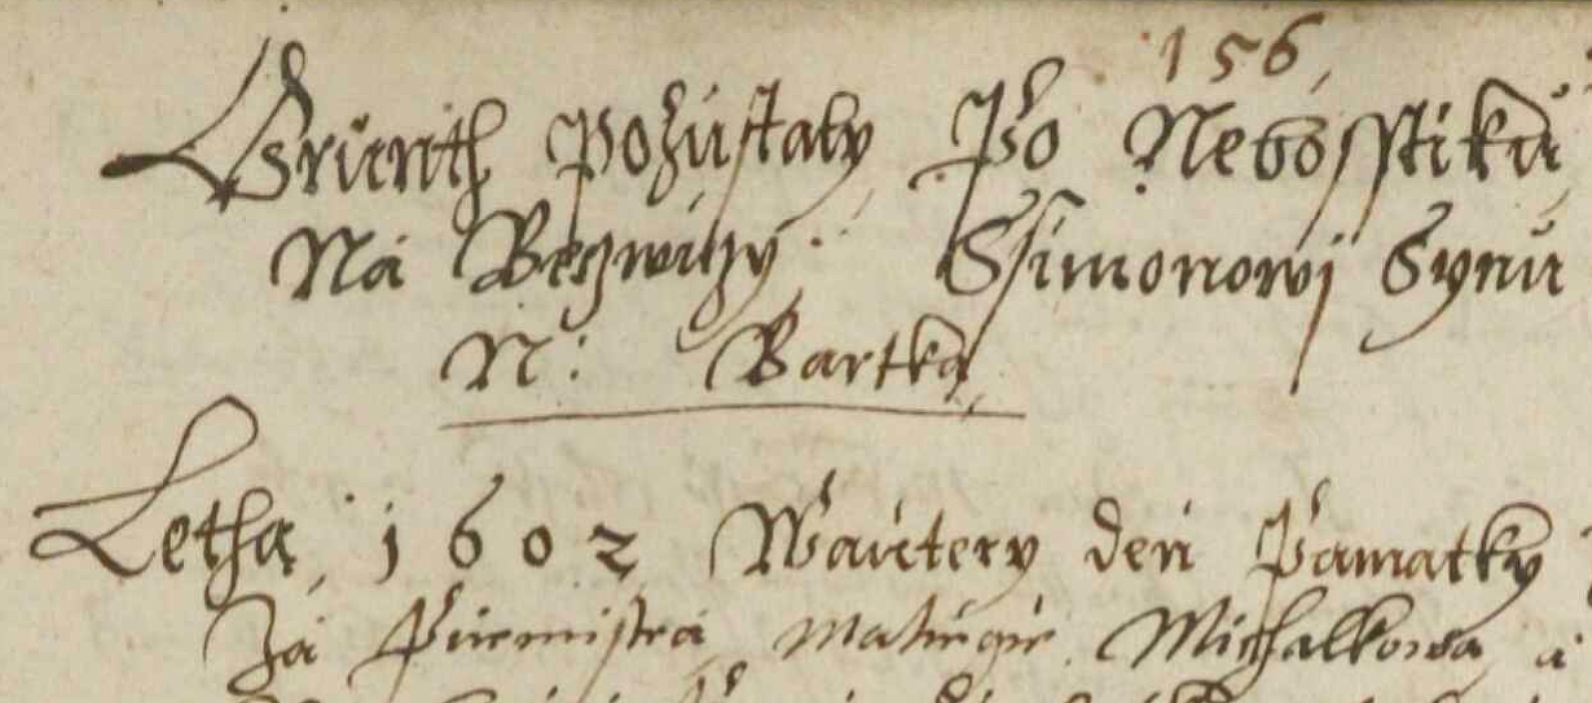 156
Grunth Pozustaly Po Nebosstiku
Na Beczwiczy Ssimonowi Synu
N: Bartka
Letha 1602 Wautery den Pamatky
Za Purmistra Michalkowa a